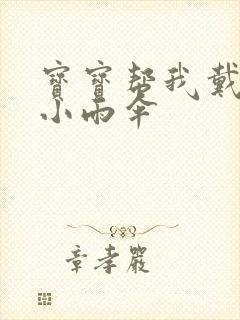 寶寶帮我戴
小雨伞
章孝嚴